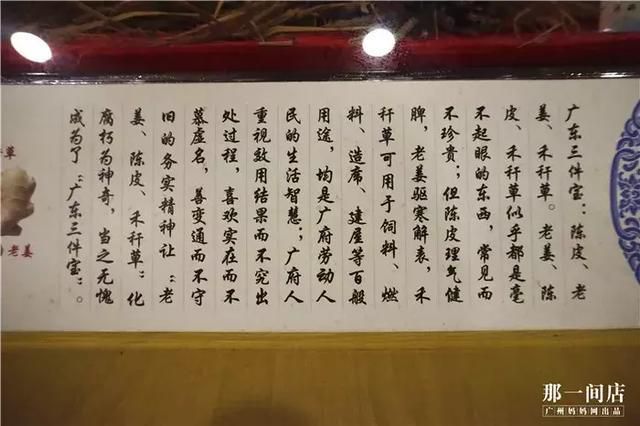 广东三件宝：陈皮、老
姜、禾秆草。老姜、陈
皮、禾秆草似乎都是毫
不起眼的东西，常见而
不珍贵；但陈皮理气健
脾，老姜驱寒解表，禾
秆草可用于饲料、燃
料、造席、建屋等百般
用途，均是广府劳动人
民的生活智慧；广府人
重视致用结果而不究出
处过程，喜欢实在而不
慕虚名，善变通而不守
旧的务实精神让“老
姜、陈皮、禾秆草”化
腐朽为神奇，当之无愧
成为了“广东三件宝”。
草
老姜
那一间店
广州妈妈网出品